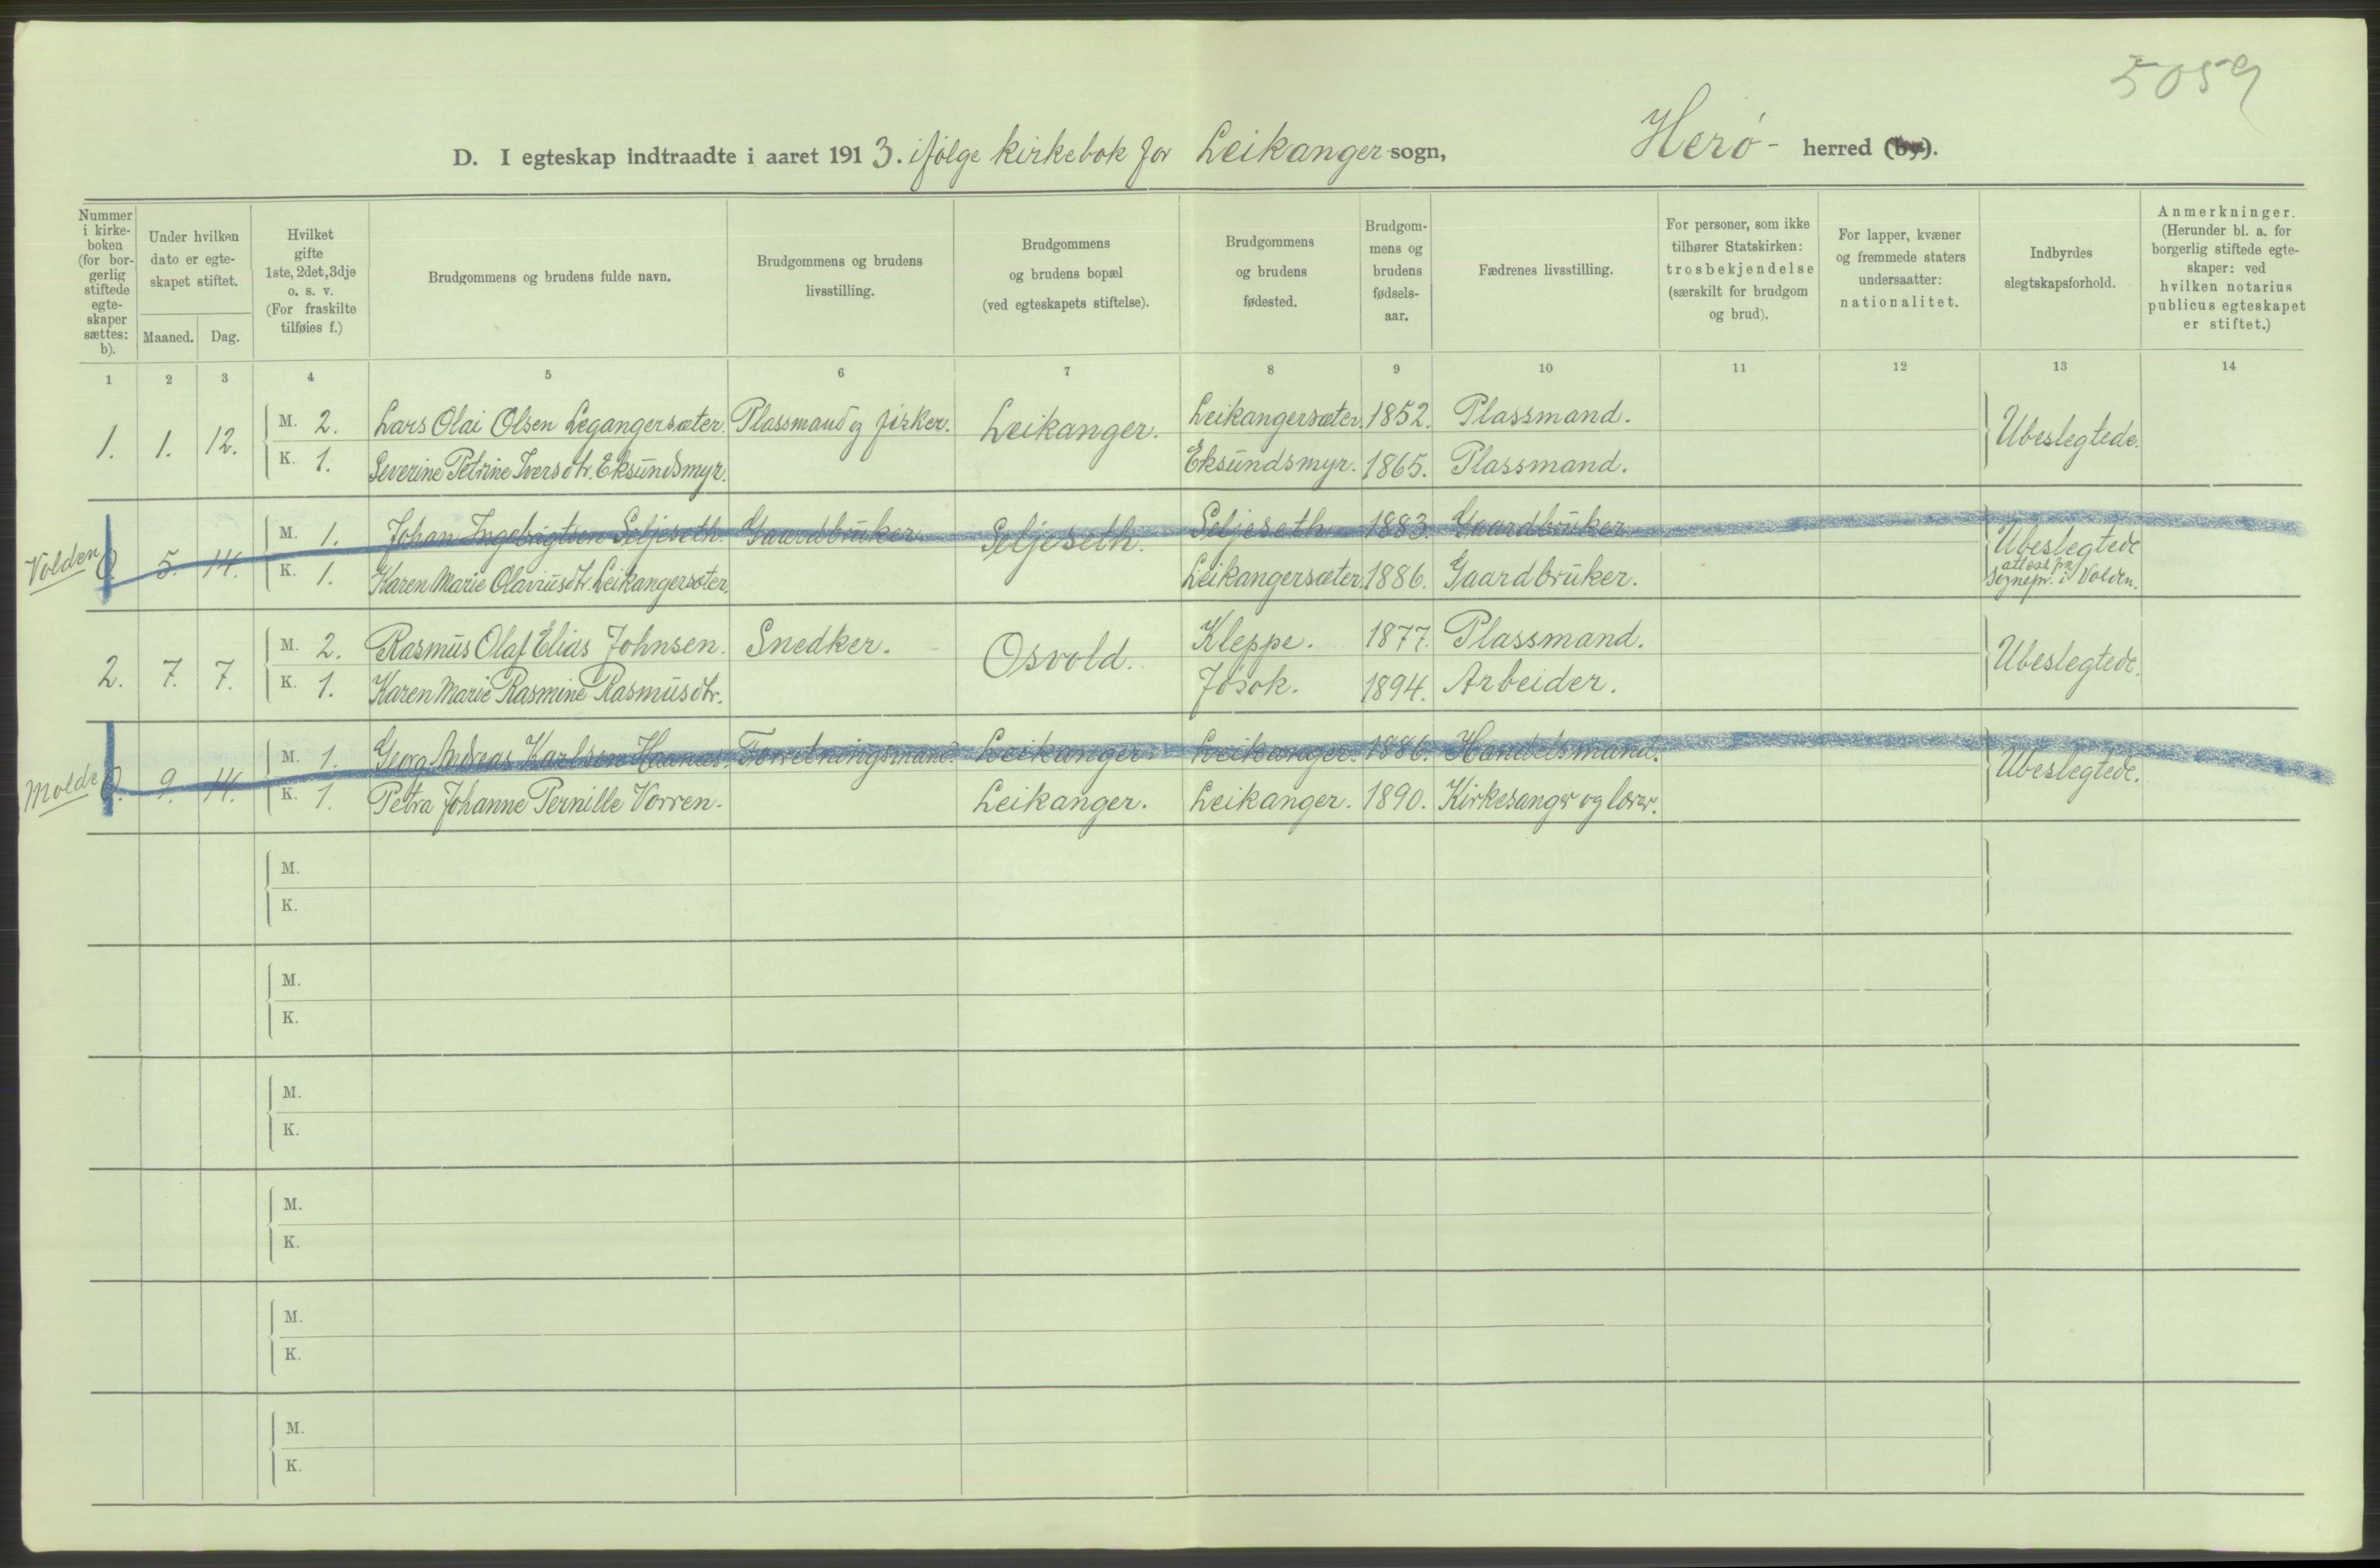 5059
D. I egteskap indtraadte i aaret 1913. ifølge kirkebok for Leikanger sogn, Herø- herred (by).
Nummer i kirkeboken (for borgerlig stiftede egteskaper sættes: b).
Under hvilken dato er egteskapet stiftet.
Maaned. Dag.
Hvilket gifte 1ste, 2det, 3dje o. s. v. (For fraskilte tilføies f.)
Brudgommens og brudens fulde navn.
Brudgommens og brudens livsstilling.
Brudgommens og brudens bopæl (ved egteskapets stiftelse).
Brudgommens og brudens fødested.
Brudgommens og brudens fødselsaar.
Fædrenes livsstilling.
For personer, som ikke tilhører Statskirken: trosbekjendelse (særskilt for brudgom og brud).
For lapper, kvæner og fremmede staters undersaatter: nationalitet.
Indbyrdes slegtskapsforhold.
Anmerkninger. (Herunder bl. a. for borgerlig stiftede egteskaper: ved hvilken notarius publicus egteskapet er stiftet.)
1 2 3 4 5 6 7 8 9 10 11 12 13 14
1. 1. 12. M. 2. Lars Olai Olsen Legangersæter. Plassmand og fisker. Leikanger. Leikangersæter. 1852. Plassmand. Ubeslegtede.
K. 1. Severine Petrine Iversdtr. Eksundsmyr. Eksundsmyr. 1865. Plassmand.
Volden 0. 5. 14. M. 1. Johan Ingebrigtsen Seljeseth. Gaardbruker Seljeseth. Seljeseth 1883. Gaardbruker Ubeslegtede
K. 1. Karen Marie Olaviusdtr. Leikangersæter. Leikangersæter. 1886. Gaardbruker. sognepr. i Volden.
2. 7. 7. M. 2. Rasmus Olaf Elias Johnsen. Snedker. Osvold. Kleppe. 1877. Plassmand. Ubeslegtede.
K. 1. Karen Marie Rasmine Rasmusdtr. Jøsok. 1894. Arbeider.
Molde 0. 9. 14. M. 1. Georg Andreas Karlsen Haanæs. Forretningsmand. Leikanger. Leikanger. 1886. Handelsmand. Ubeslegtede.
K. 1. Petra Johanne Pernille Vorren. Leikanger. Leikanger. 1890. Kirkesanger og lærer.
M.
K.
M.
K.
M.
K.
M.
K.
M.
K.
M.
K.